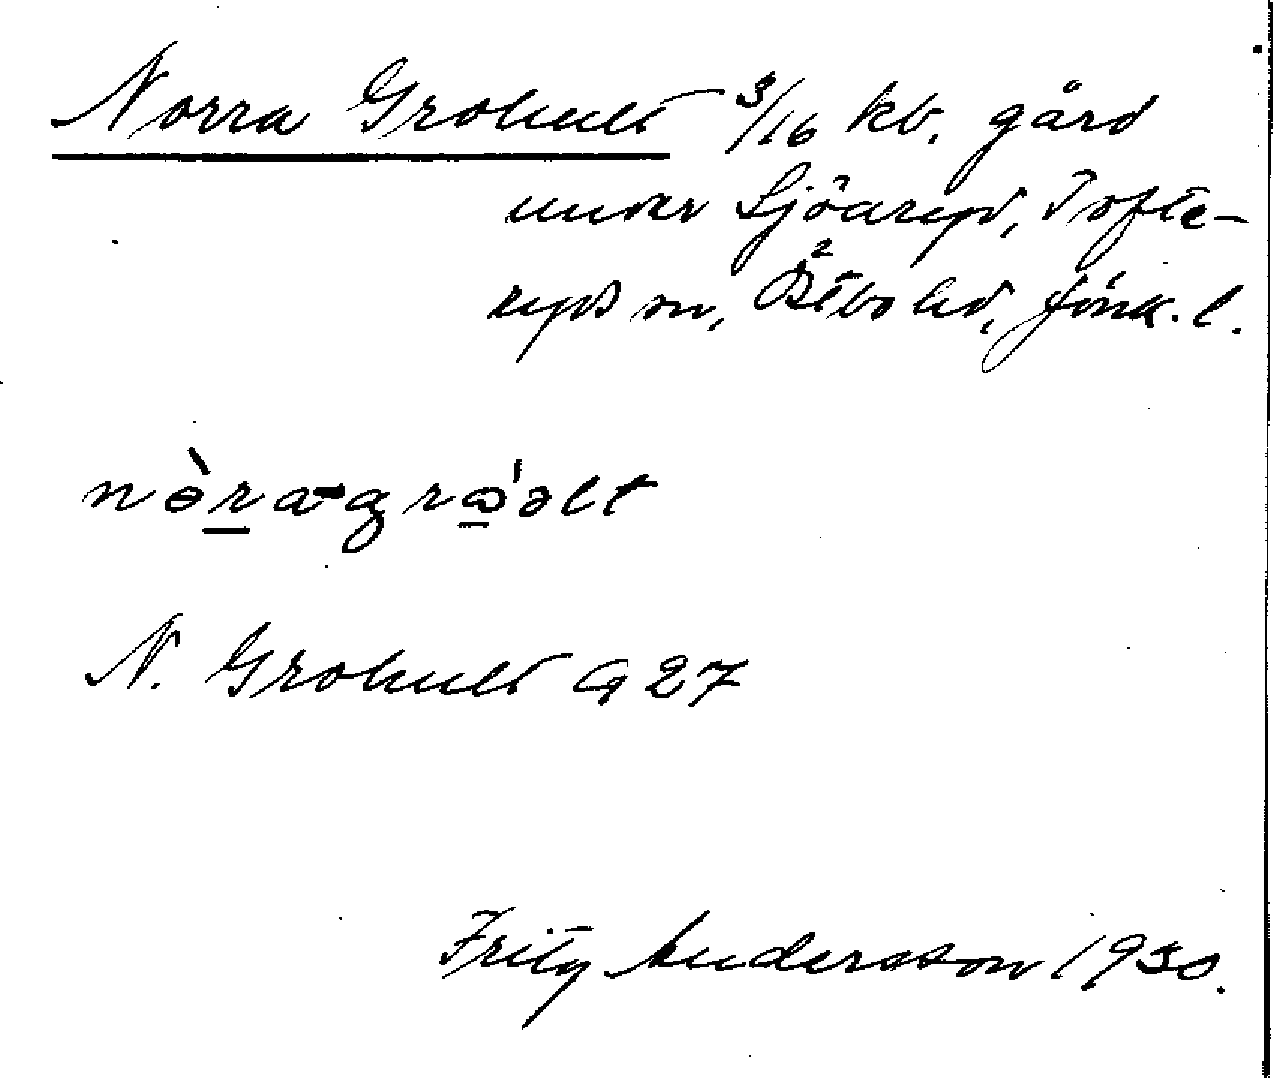 Norra Grohult 3/16 kb. gård
under Sjöaryd, Tofte-
ryds sn, Östbo hd, Jönk. l.
nə̀ra-grɷ̱́əlt
N. Grohult G 27
Fritz Andersson 1930.